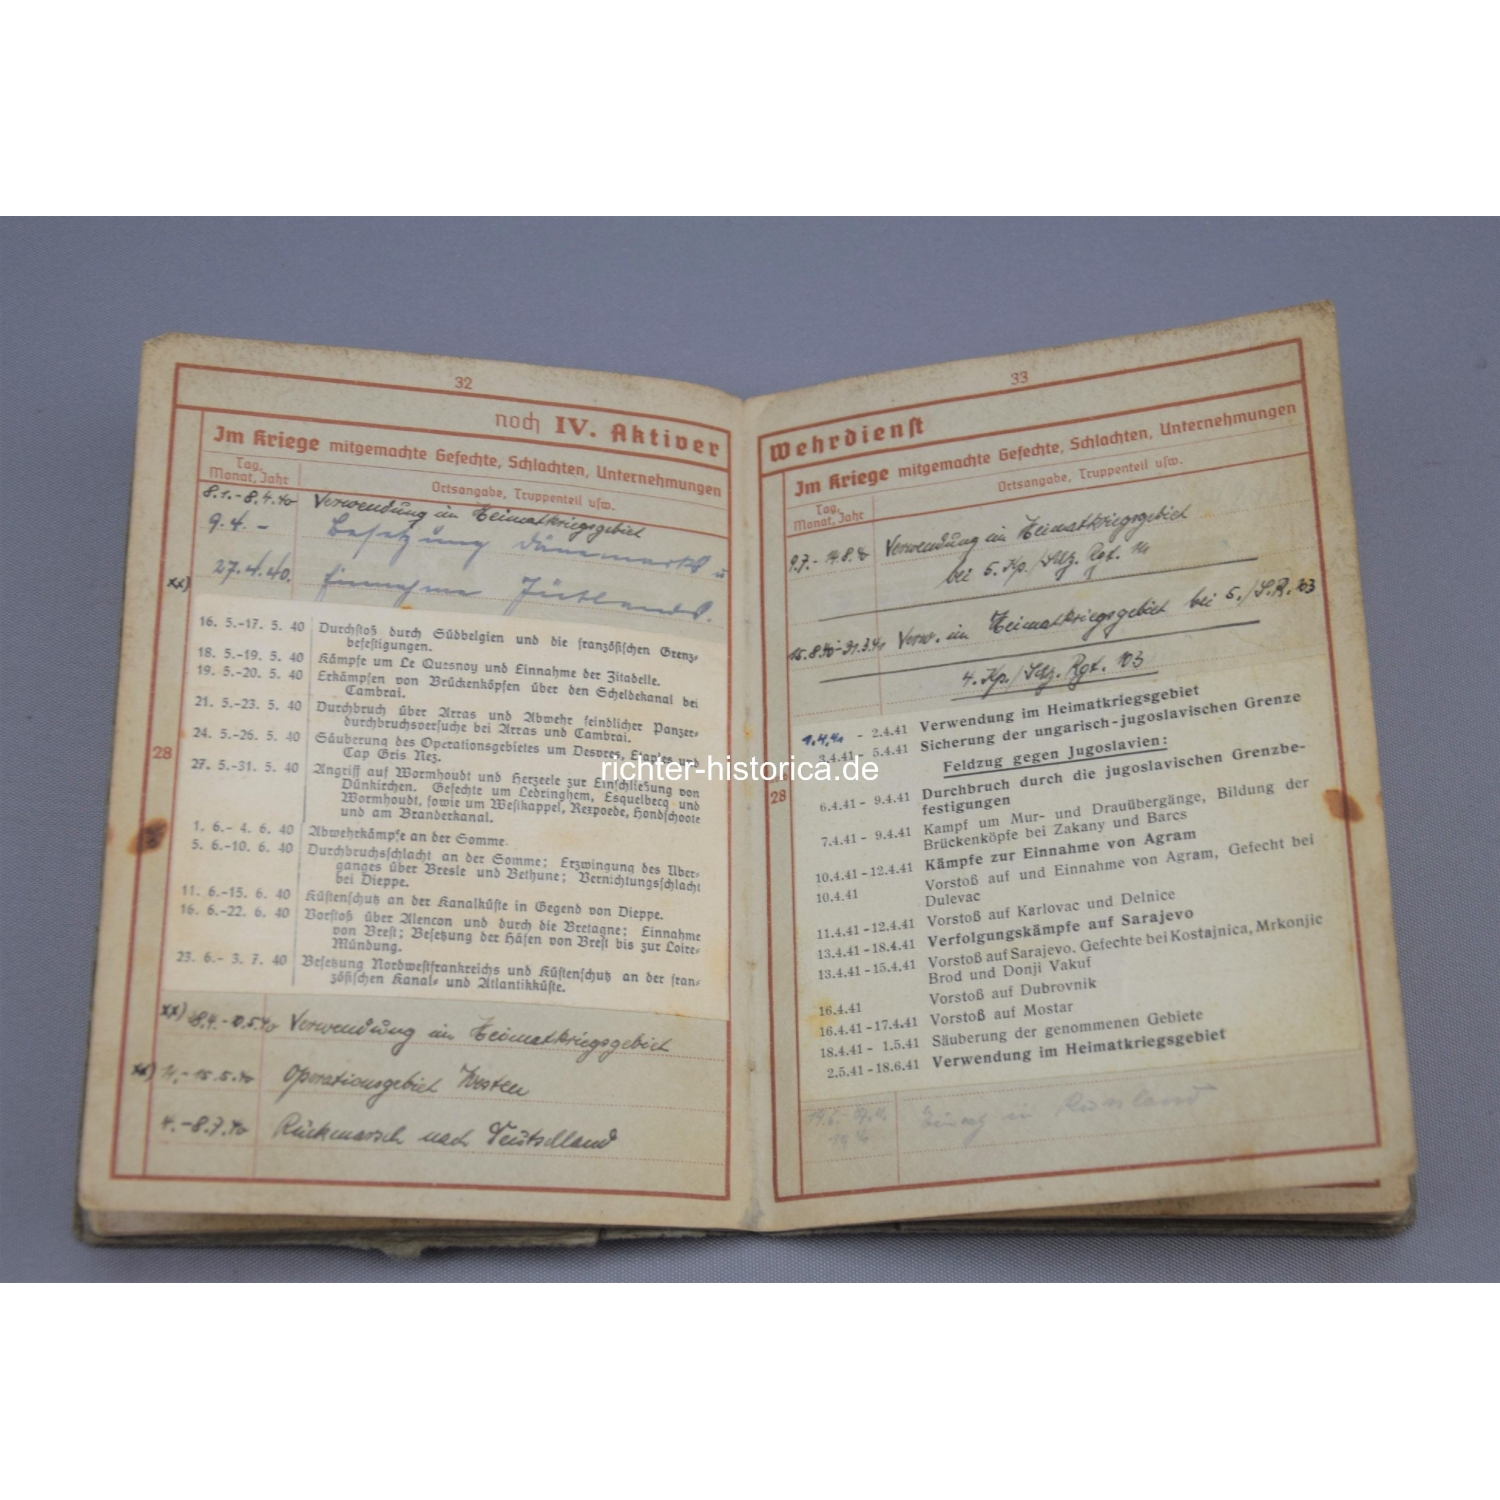 32
noch IV. Aktiver
Im Kriege mitgemachte Gefechte, Schlachten, Unternehmungen
Tag, Monat, Jahr
Ortsangabe, Truppenteil usw.
8.1.-8.4.40 Verwendung im Heimatkriegsgebiet
9.4. - Besetzung Dänemarks u
27.4.40. Einnahme Jütlands.
xx)
16. 5.-17. 5. 40 Durchstoß durch Südbelgien und die französischen Grenz-
befestigungen.
18. 5.-19. 5. 40 Kämpfe um Le Quesnoy und Einnahme der Zitadelle.
19. 5.-20. 5. 40 Erkämpfen von Brückenköpfen über den Scheldekanal bei
Cambrai.
21. 5.-23. 5. 40 Durchbruch über Arras und Abwehr feindlicher Panzer-
durchbruchsversuche bei Arras und Cambrai.
24. 5.-26. 5. 40 Säuberung des Operationsgebietes um Desvres, Etaples und
Cap Gris Nez.
27. 5.-31. 5. 40 Angriff auf Wormhoudt und Herzeele zur Einschließung von
Dünkirchen. Gefechte um Ledringhem, Esquelbecq und
Wormhoudt, sowie um Westkappel, Rexpoede, Hondschoote
und am Branderkanal.
28
1. 6.- 4. 6. 40 Abwehrkämpfe an der Somme.
5. 6.-10. 6. 40 Durchbruchsschlacht an der Somme; Erzwingung des Über-
ganges über Bresle und Bethune; Vernichtungsschlacht
bei Dieppe.
11. 6.-15. 6. 40 Küstenschutz an der Kanalküste in Gegend von Dieppe.
16. 6.-22. 6. 40 Vorstoß über Alencon und durch die Bretagne; Einnahme
von Brest; Besetzung der Häfen von Brest bis zur Loire-
Mündung.
23. 6.- 3. 7. 40 Besetzung Nordwestfrankreichs und Küstenschutz an der fran-
zösischen Kanal- und Atlantikküste.
xx) 28.4.-10.5.40 Verwendung im Heimatkriegsgebiet
xx) 11.-15.5.40 Operationsgebiet Westen
4.-8.7.40 Rückmarsch nach Deutschland
33
Wehrdienst
Im Kriege mitgemachte Gefechte, Schlachten, Unternehmungen
Tag, Monat, Jahr
Ortsangabe, Truppenteil usw.
9.7.-14.8.40 Verwendung im Heimatkriegsgebiet
bei 5. Kp./Schtz. Rgt. 14
15.8.40-31.3.41 Verw. im Heimatkriegsgebiet bei 5./S.R.103
4. Kp./Schtz. Rgt. 103
1.4.41 - 2.4.41 Verwendung im Heimatkriegsgebiet
3.4.41 - 5.4.41 Sicherung der ungarisch-jugoslavischen Grenze
Feldzug gegen Jugoslavien:
28
6.4.41 - 9.4.41 Durchbruch durch die jugoslavischen Grenzbe-
festigungen
7.4.41 - 9.4.41 Kampf um Mur- und Drauübergänge, Bildung der
Brückenköpfe bei Zakany und Barcs
10.4.41 - 12.4.41 Kämpfe zur Einnahme von Agram
10.4.41 Vorstoß auf und Einnahme von Agram, Gefecht bei
Dulevac
11.4.41 - 12.4.41 Vorstoß auf Karlovac und Delnice
13.4.41 - 18.4.41 Verfolgungskämpfe auf Sarajevo
13.4.41 - 15.4.41 Vorstoß auf Sarajevo. Gefechte bei Kostajnica, Mrkonjic
Brod und Donji Vakuf
16.4.41 Vorstoß auf Dubrovnik
16.4.41 - 17.4.41 Vorstoß auf Mostar
18.4.41 - 1.5.41 Säuberung der genommenen Gebiete
2.5.41 - 18.6.41 Verwendung im Heimatkriegsgebiet
in Russland
richter-historica.de